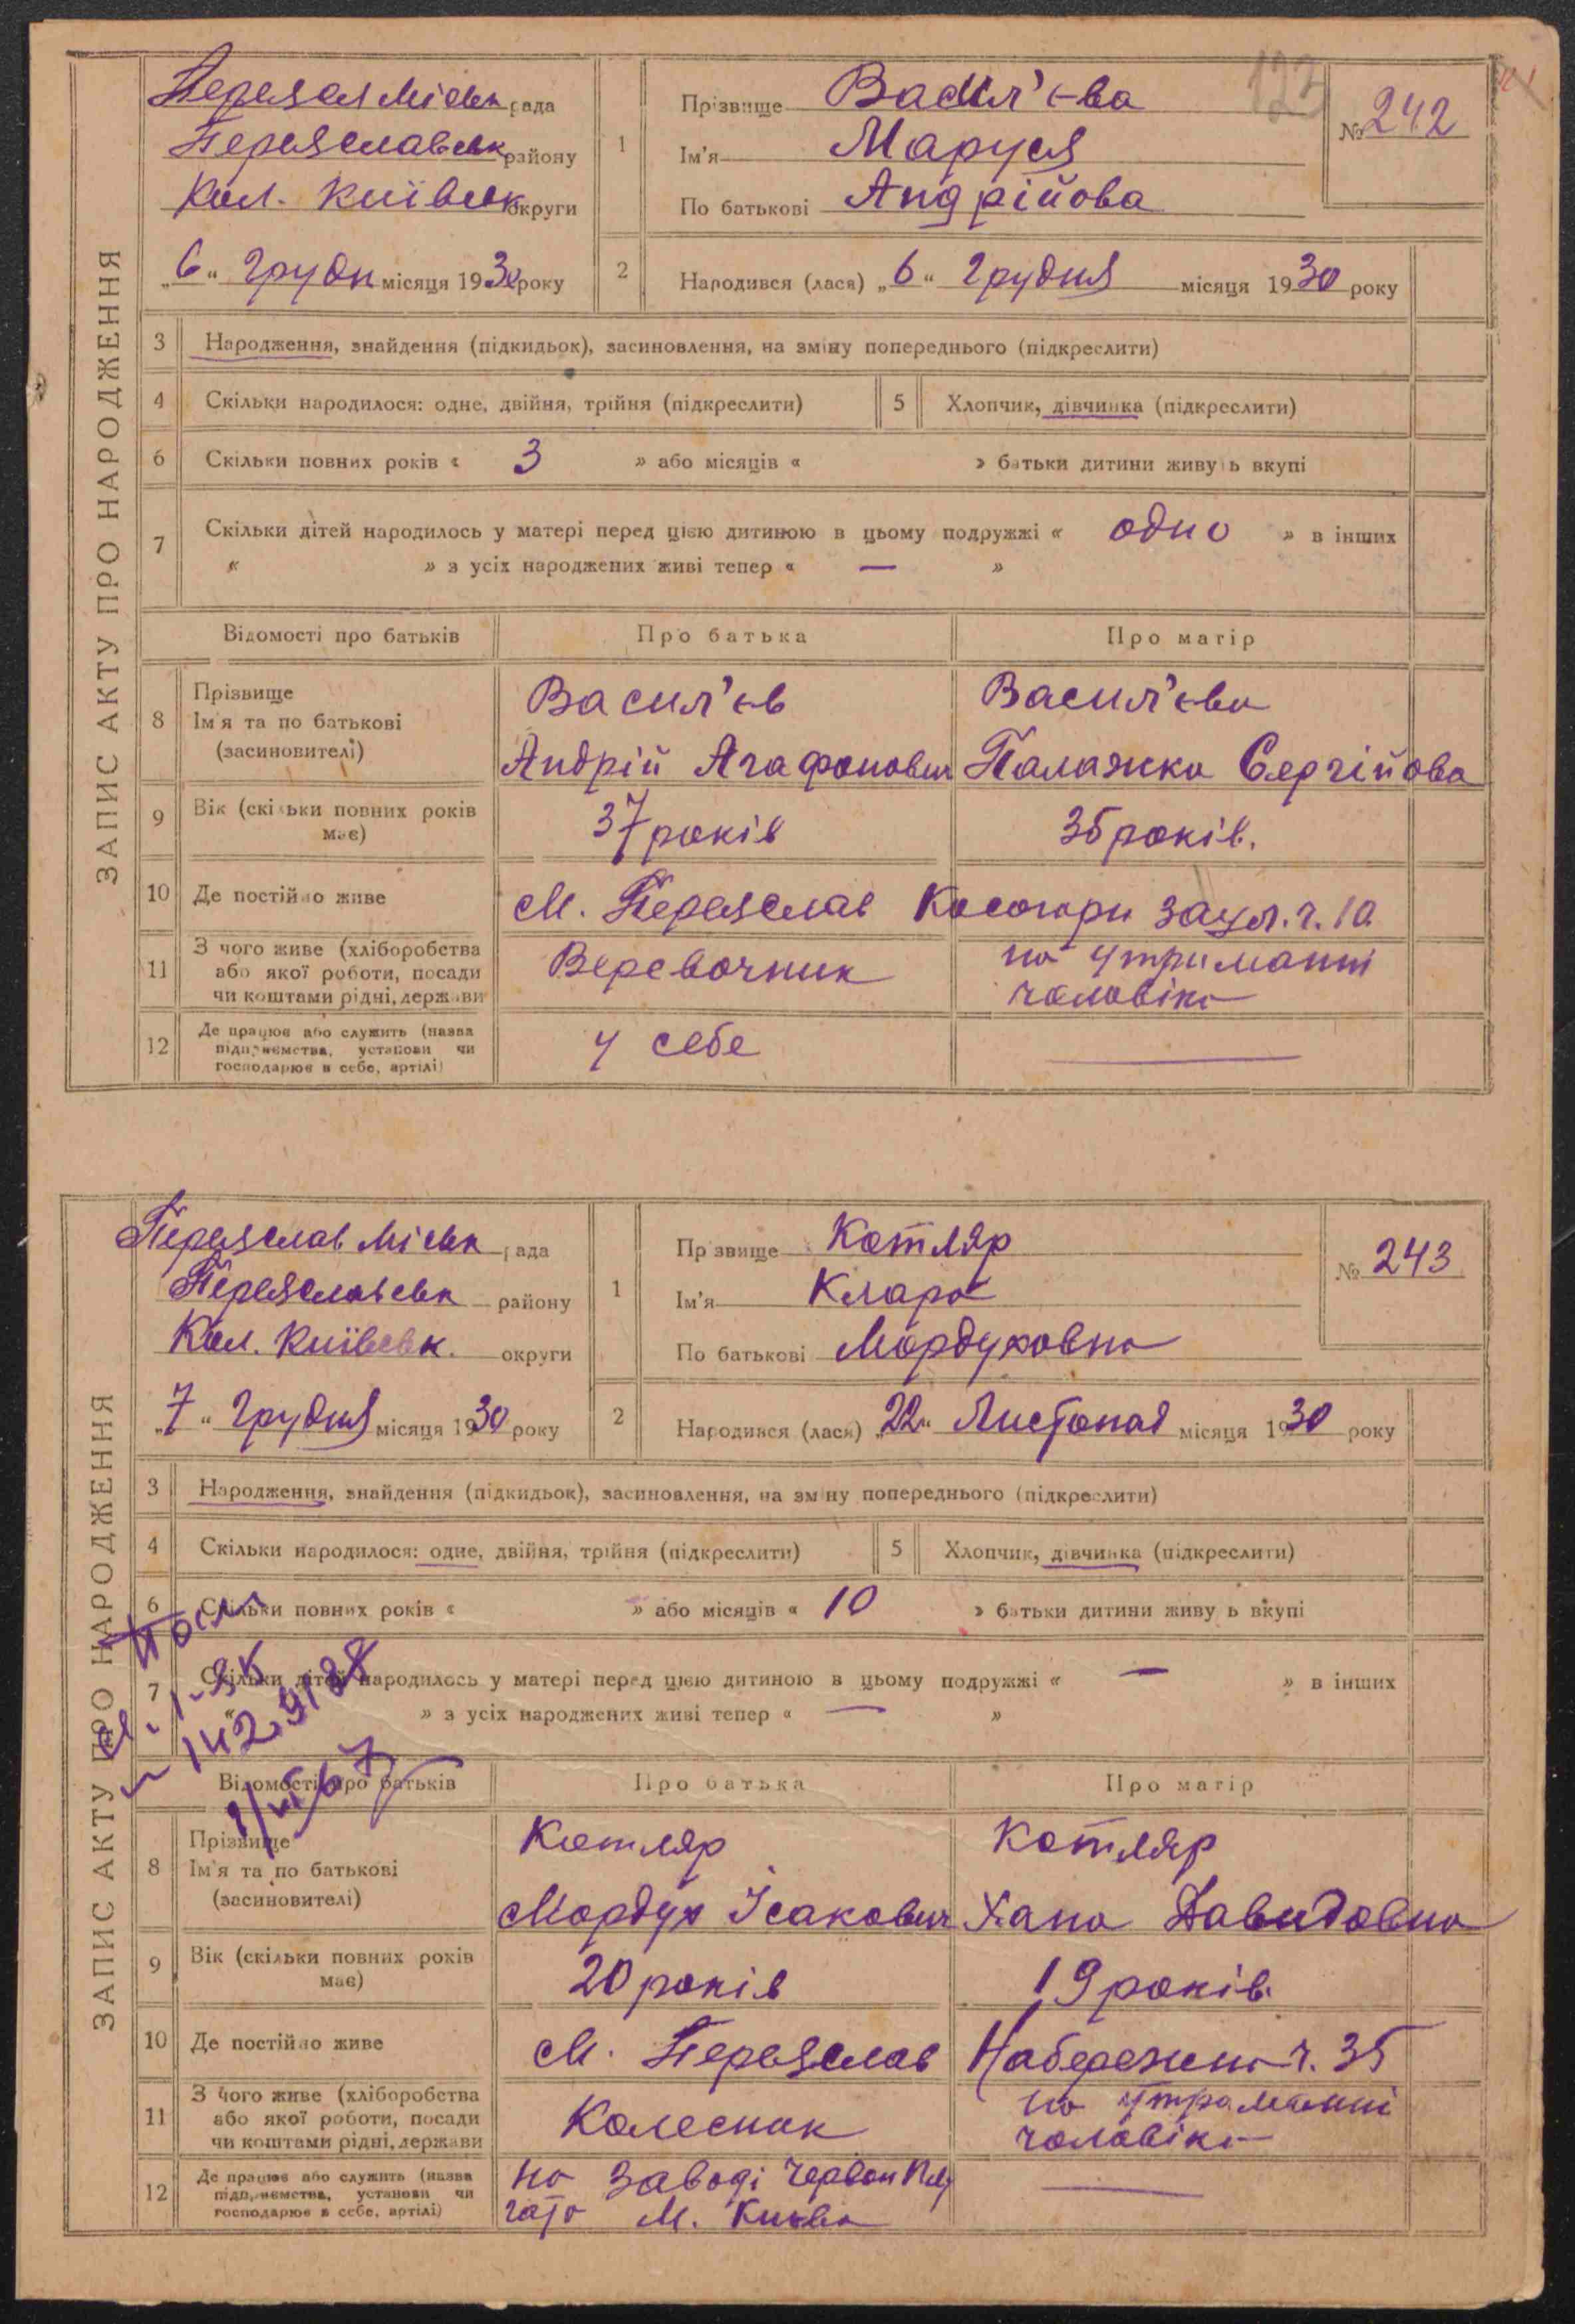 ЗАПИС АКТУ ПРО НАРОДЖЕННЯ
Переясл міськ рада
Переяславськ району
Кол. Київськ округи
„6“ Грудн місяця 1930 року
1 Прізвище Васил'єва
Ім'я Маруся
По батькові Андрійова
№ 242
123
2 Народився (лася) „6“ Грудня місяця 1930 року
3 Народження, знайдення (підкидьок), засиновлення, на зміну попереднього (підкреслити)
4 Скільки народилося: одне, двійня, трійня (підкреслити) 5 Хлопчик, дівчинка (підкреслити)
6 Скільки повних років « 3 » або місяців « » батьки дитини живуть вкупі
7 Скільки дітей народилось у матері перед цією дитиною в цьому подружжі « одно » в інших
« » з усіх народжених живі тепер « — »
Відомості про батьків Про батька Про матір
8 Прізвище Васил'єв Васил'єва
Ім'я та по батькові
(засиновителі) Андрій Агафонович Палажка Сергійова
9 Вік (скільки повних років має) 37 років 35 років.
10 Де постійно живе м. Переяслав Косогори заул. ч. 10
11 З чого живе (хліборобства або якої роботи, посади чи коштами рідні, держави Веревочник на утриманні чоловіка
12 Де працює або служить (назва підприємства, установи чи господарює в себе, артілі) у себе —
ЗАПИС АКТУ ПРО НАРОДЖЕННЯ
Переяслав міськ рада
Переяславськ району
Кол. Київськ. округи
„7“ Грудня місяця 1930 року
1 Прізвище Котляр
Ім'я Клара
По батькові Мордуховна
№ 243
2 Народився (лася) „22“ Листопад місяця 1930 року
3 Народження, знайдення (підкидьок), засиновлення, на зміну попереднього (підкреслити)
4 Скільки народилося: одне, двійня, трійня (підкреслити) 5 Хлопчик, дівчинка (підкреслити)
6 Скільки повних років « » або місяців « 10 » батьки дитини живуть вкупі
7 Скільки дітей народилось у матері перед цією дитиною в цьому подружжі « — » в інших
« » з усіх народжених живі тепер « — »
Відомості про батьків Про батька Про матір
8 Прізвище Котляр Котляр
Ім'я та по батькові
(засиновителі) Мордух Ісакович Хана Давидовна
9 Вік (скільки повних років має) 20 років 19 років.
10 Де постійно живе м. Переяслав Набережна ч. 35
11 З чого живе (хліборобства або якої роботи, посади чи коштами рідні, держави Колесник на утриманні чоловіка
12 Де працює або служить (назва підприємства, установи чи господарює в себе, артілі) на заводі Червон Плу —
гато м. Києва